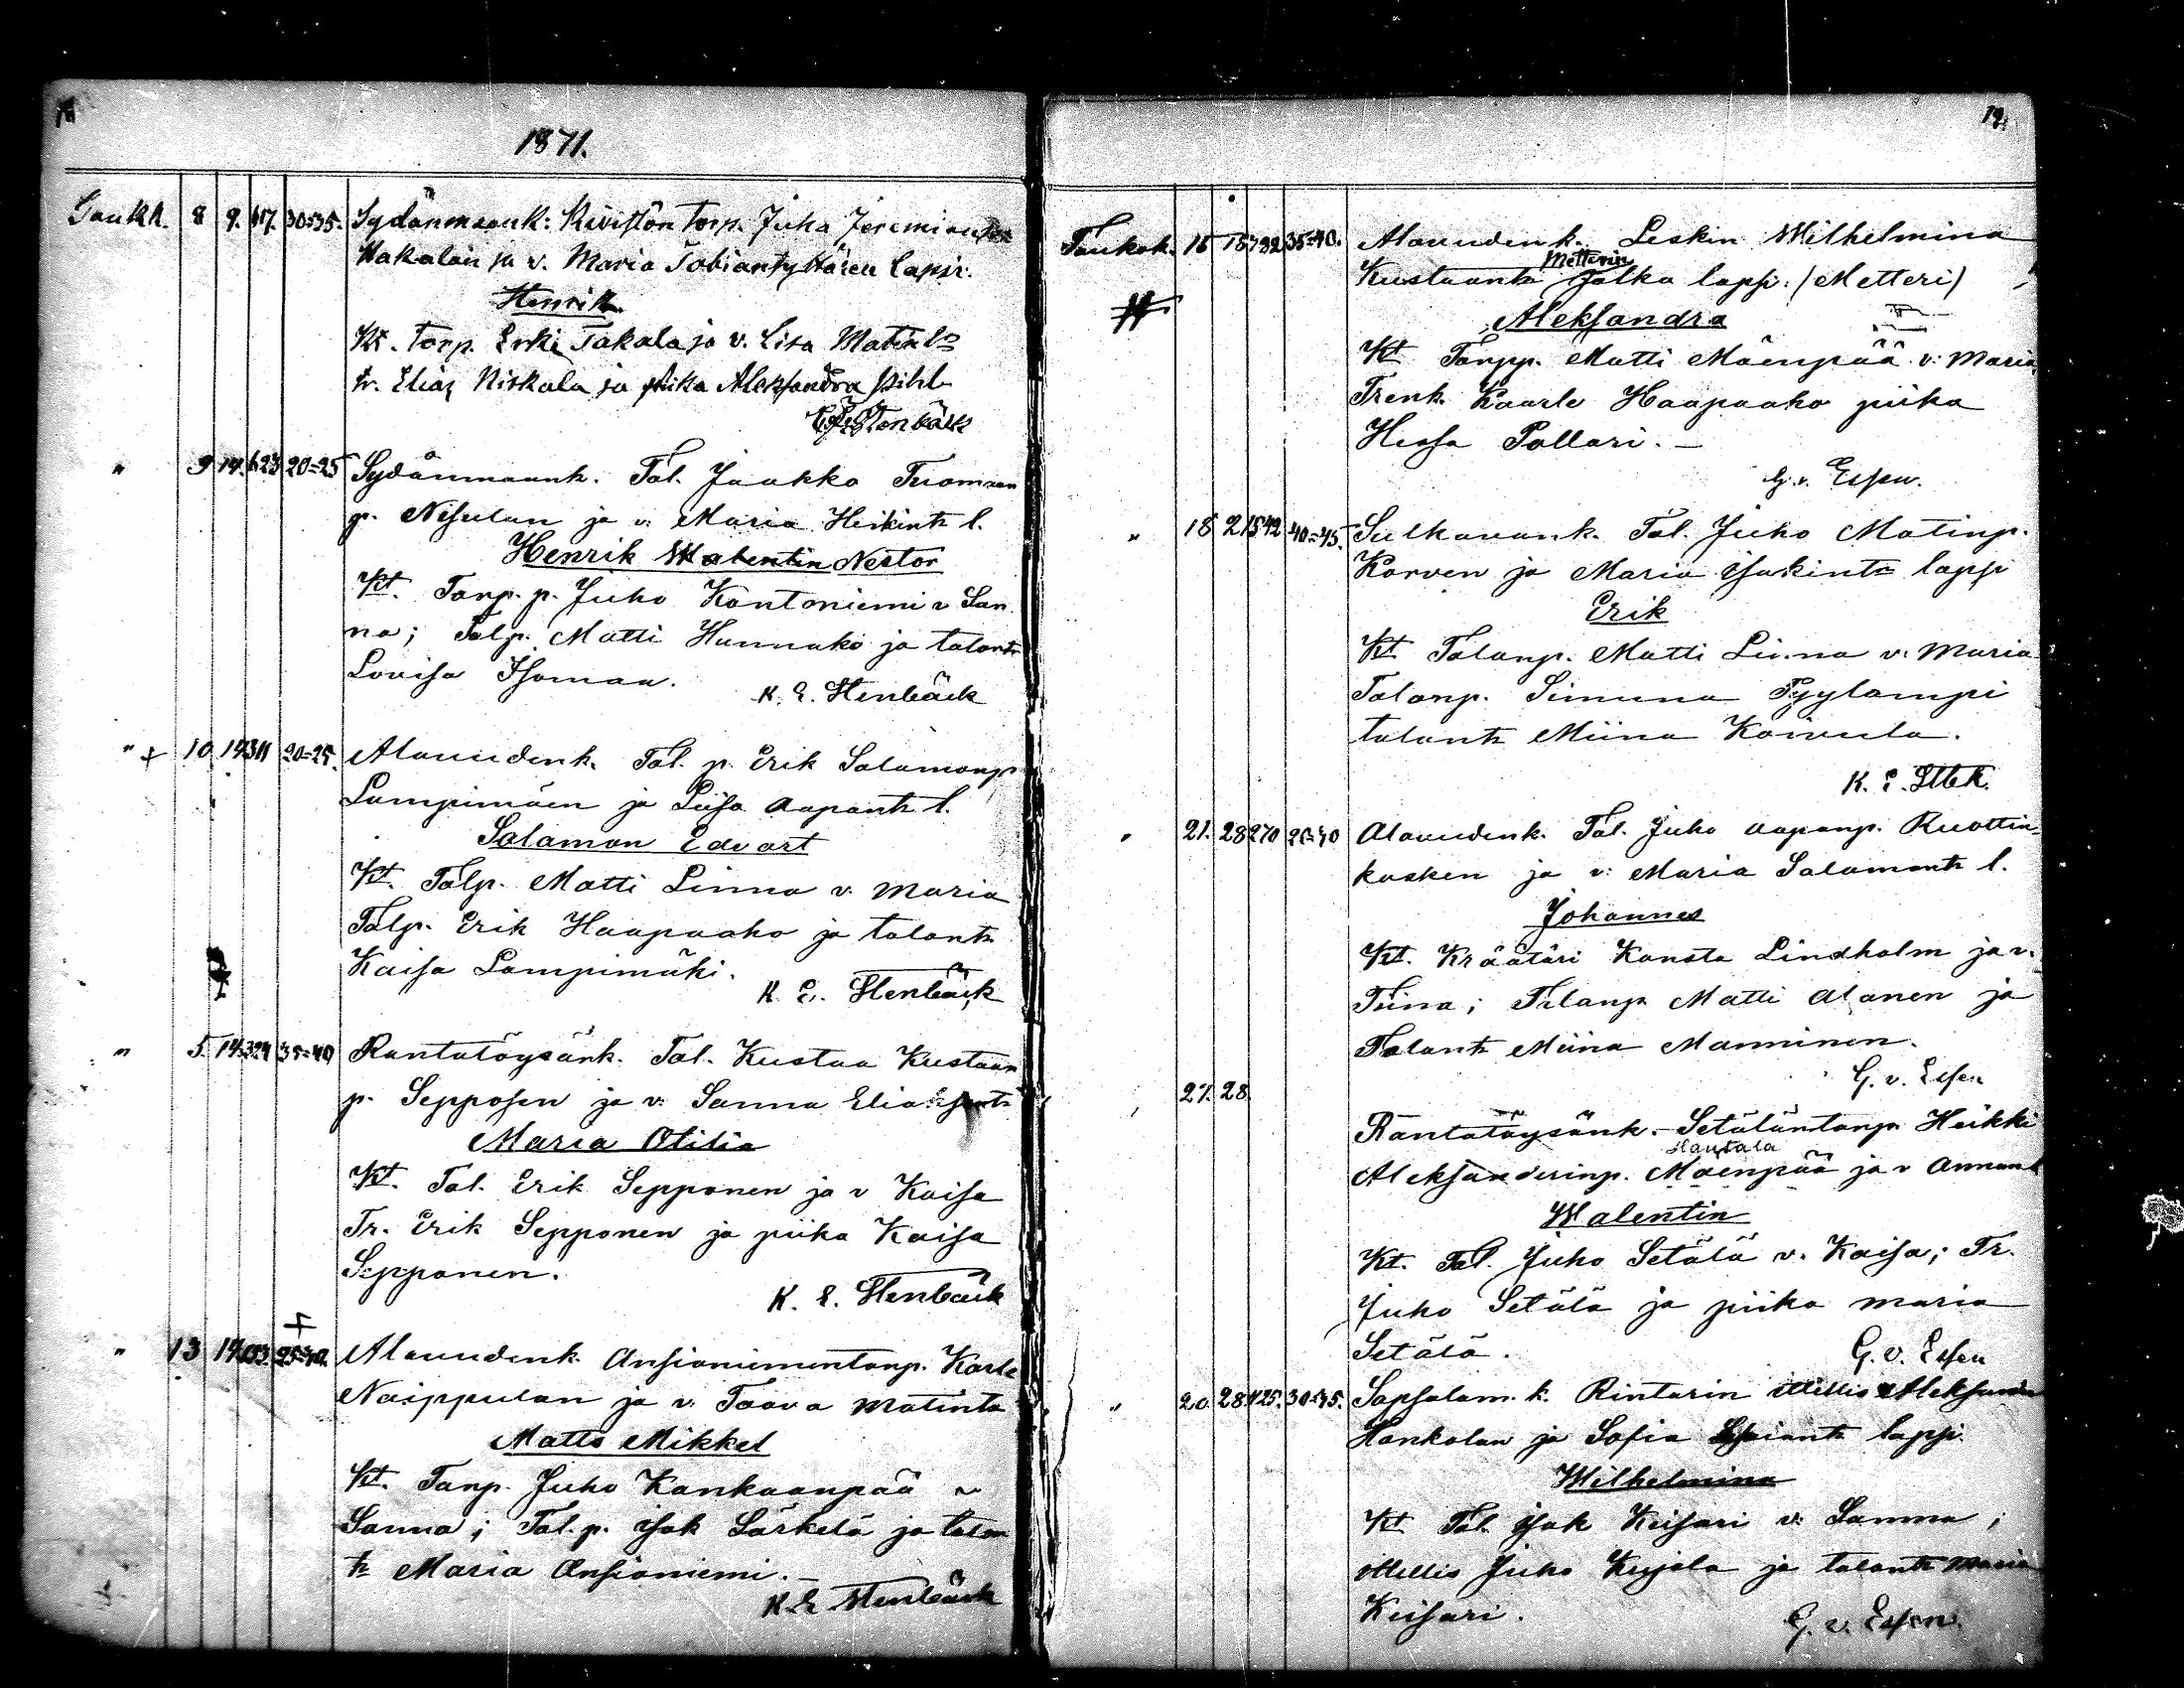 1871.
Toukk. 8 9. 617. 30=35. Sydänmaank: Kivistön torp. Juha Jeremianp.
Hakalan ja v. Maria Tobiantyttären lapsi.
Henrik
Kt. Torp. Erki Takala ja v. Lisa Matint.
tr. Elias Niskala ja piika Aleksandra Pihl
Stenbäck
" 9 14. 623 20=25 Sydänmaank. Tal. Jaakko Tuomaan
p. Nisulan ja v. Maria Heikint. l.
Henrik Walentin Nestor
Kt. Torp. p. Juho Kontoniemi v San
na; Talp. Matti Hannuko ja talont
Lovisa Isomaa.
K. E. Stenbäck
" + 10 14 311 20=25. Alavudenk. Tal. p. Erik Salamonp
Lampimäen ja Liisa Aapont. l.
Salamon Edvart
Kt. Talp. Matti Linna v. Maria
Talp. Erik Haapaaho ja talont.
Kaisa Lampimäki.
K. E. Stenbäck
" 5. 14. 324 35=40 Rantatöysänk. Tal. Kustaa Kustaan
p. Sepposen ja v. Sanna Elia
Maria Otilia
Kt. Tal. Erik Sepponen ja v Kaisa
Tr. Erik Sepponen ja piika Kaisa
Sepponen.
K. E. Stenbäck
+
" 13 14 Alavudenk. Ansioniementorp. Karle
Naippulan ja v. Taava Matint.
Matts Mikkel
Kt. Torp. Juho Kankaanpää v
Sanna; Tal. p. Isak Särkelä ja talon
t. Maria Ansioniemi.
K. E. Stenbäck
19.
Toukok. 15 35=40. Alavudenk. Leskin Wilhelmina
Metterin
Kustaant. Jalka lapsi. (Metteri)
Aleksandra
Kt. Torpp. Matti Mäenpää v: Maria,
Trenk. Kaarle Haapaaho piika
Hessa Pollari.
G. v. Essen.
" 18 21 542 40=45. Sulkavank. Tal. Juho Matinp.
Korven ja Maria Isakint. lapsi
Erik
Kt. Talonp. Matti Linna v. Maria
Talonp. Simuna Pyylampi
talont. Miina Koivula.
K. E. Stbk.
" 21. 28 270 Alavudenk. Tal. Juho Aaponp. Ruottin-
kosken ja v: Maria Salamont. l.
Johannes
Kt. Kräätäri Konsta Lindholm ja v.
Tiina; Talonp. Matti Alanen ja
Talont. Miina Manninen.
G. v. Essen
27. 28.
Rantatöysänk. Setäläntorp. Heikki
Hautala
Aleksanderinp. Mäenpää ja v Annan l
Walentin
Kt. Tal. Juho Setälä v. Kaisa; Tr.
Juho Setälä ja piika Maria
Setälä.
G. v. Essen
" 20 28. 30=35. Sapsalam. k. Rintarin itellis Aleksand
Honkolan ja Sofia lapsi.
Wilhelmina
Kt. Tal. Isak Keisari v: Sanna;
itellis Juho Kujala ja talont Maria
Keisari.
G. v. Essen.